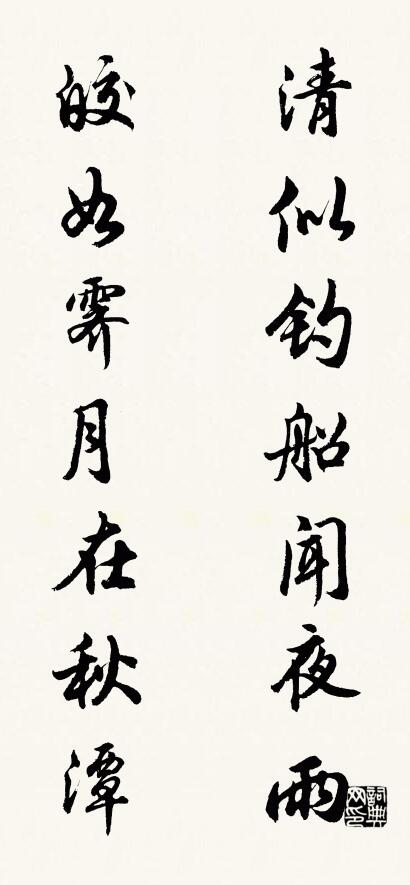 清似钓船闻夜雨
皎如霁月在秋潭
詞典網印